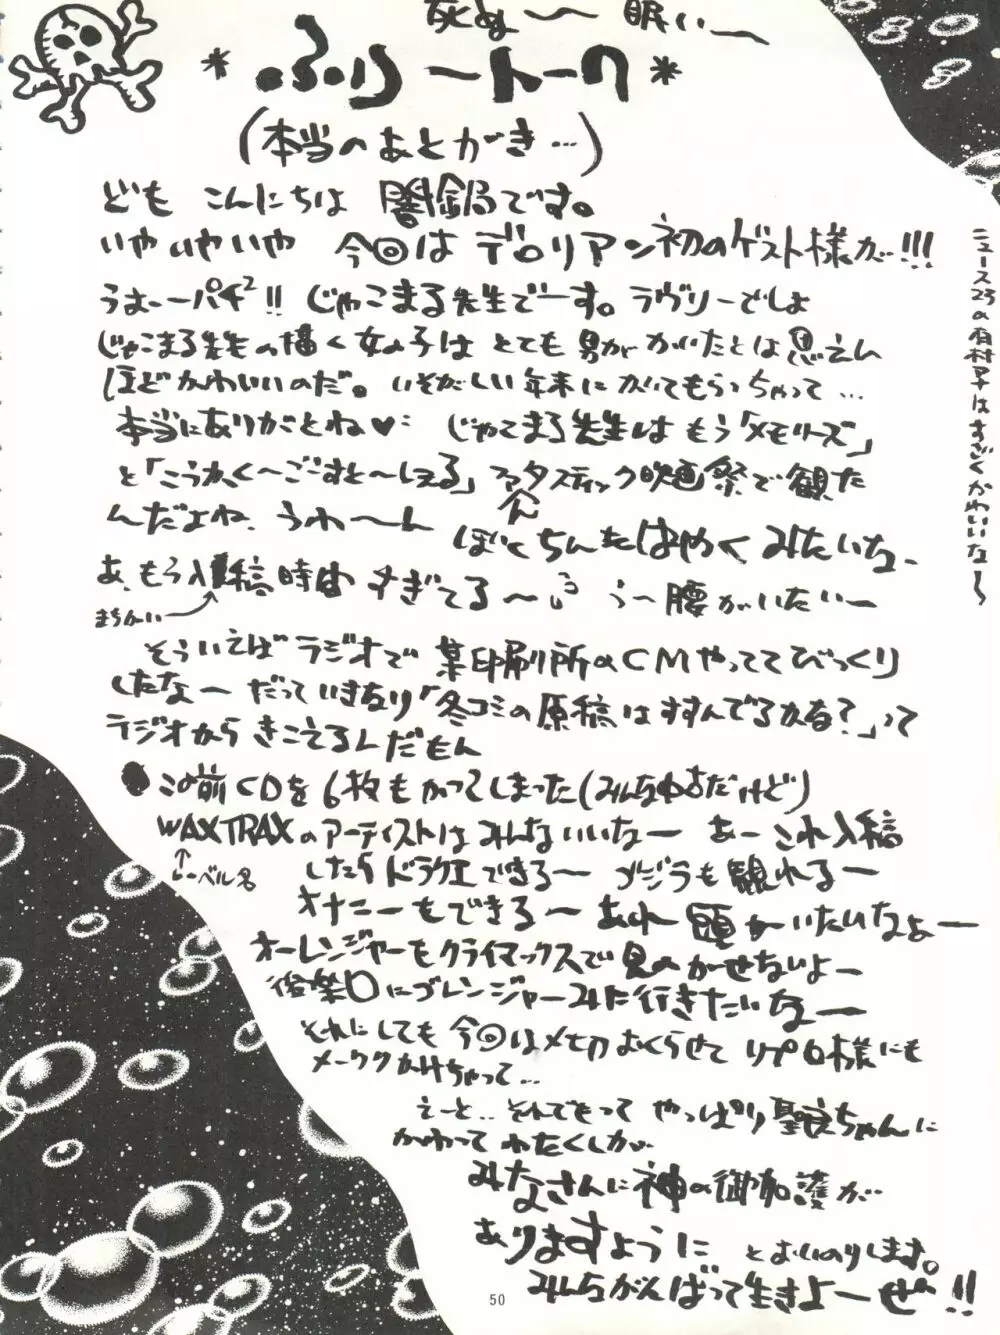 死ぬ〜 眠い〜
*ふりートーク*
(本当のあとがき…)
ども こんにちは 闇鍋です。
いやいやいや 今回は デロリアン初のゲスト様が!!!
うおーーパチ²!! じゃこまる先生でーす。ラヴリーでしょ
じゃこまる先生の描く女の子は とても 男が かいたとは思えん
ほどかわいいのだ。いそがしい年末にかいてもらっちゃって…
本当にありがとね♥ じゃこまる先生は もう「メモリーズ」
と「こうかく〜ごーすと〜しぇる」ファンタスティック映画祭で観た
んだよね、うわ〜ん ぼくちんもはやくみたいな、
あ、もう入稿時間 すぎてる〜 う〜腰がいたいー
まちがい→
そういえば ラジオで 某印刷所のCMやっててびっくり
したなー だっていきなり「冬コミの原稿はすすんでるかな?」って
ラジオから きこえるんだもん
●この前CDを6枚もかってしまった(みんな中古だけど)
WAX TRAXのアーティストはみんないいなー あー これ入稿
↑レーベル名
したら ドラクエできる〜 ガメラも観れるー
オナニーもできる〜 あれ 頭がいたいなよー
オーレンジャーもクライマックスで見のがせないよー
後楽園にオーレンジャーみに行きたいなー
それにしても 今回は〆切おくらせて リプロ様にも
メーワクかけちゃって…
えーと.. それでもって やっぱり 聖良ちゃんに
かわって わたくしが
みなさんに神の御加護が
ありますように とおいのりします。
みんながんばって生きよーぜ!!
ニュース23の有村チャンはすごくかわいいな〜
50